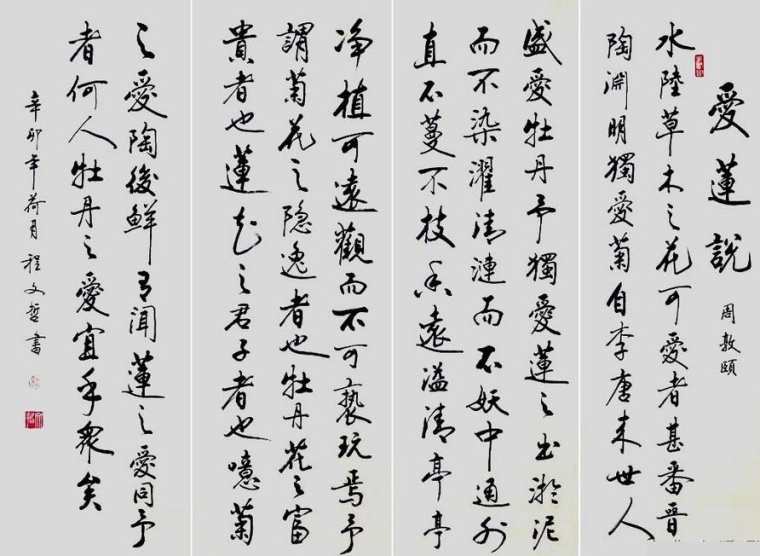 愛蓮說
周敦頤
水陸草木之花可愛者甚番晋
陶淵明獨愛菊自李唐来世人
盛愛牡丹予獨愛蓮之出淤泥
而不染濯清漣而不妖中通外
直不蔓不枝香遠溢清亭亭
净植可遠觀而不可褻玩焉予
謂菊花之隐逸者也牡丹花之富
貴者也蓮花之君子者也噫菊
之愛陶後鮮有闻蓮之愛同予
者何人牡丹之愛宜乎衆矣
辛卯年荷月程文哲書